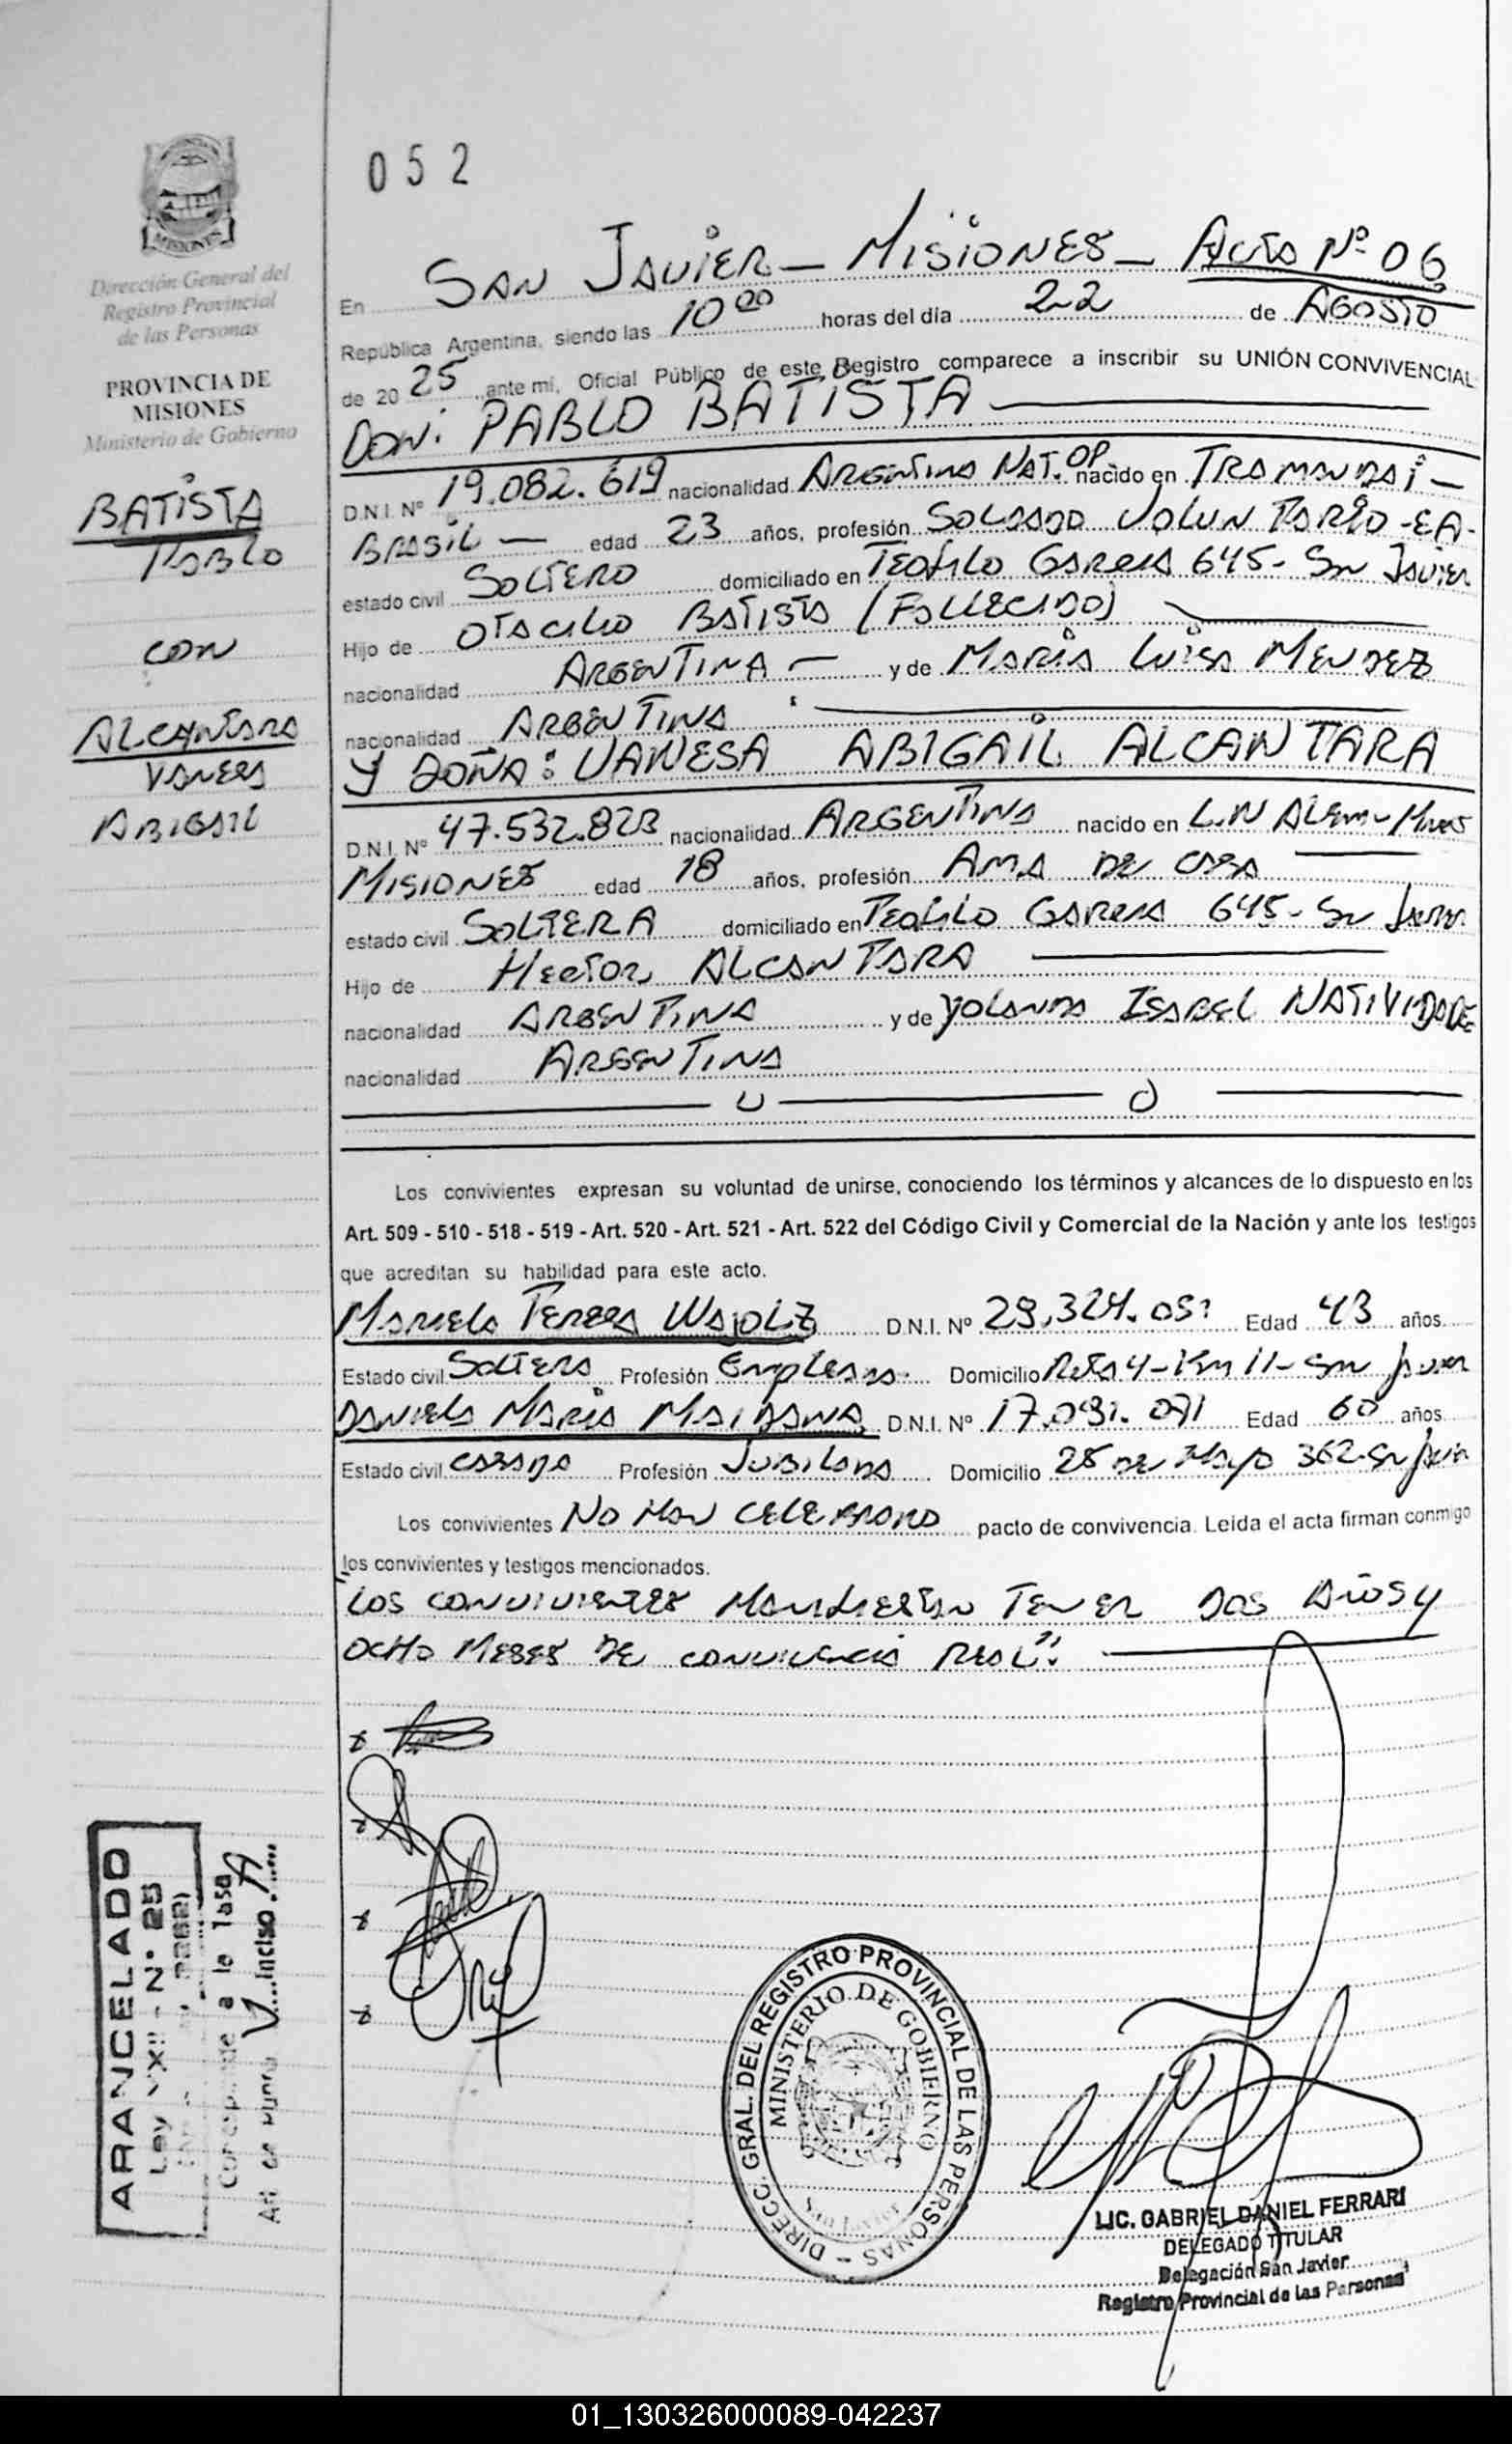 052
MISIONES
Dirección General del
Registro Provincial
de las Personas
PROVINCIA DE
MISIONES
Ministerio de Gobierno
BATISTA
PABLO
CON
ALCANTARA
VANESA
ABIGAIL
En SAN JAVIER - MISIONES - ACTA Nº 06
República Argentina, siendo las 10 00 horas del día 22 de AGOSTO
de 20 25 ante mi, Oficial Público de este Registro comparece a inscribir su UNIÓN CONVIVENCIAL
DON: PABLO BATISTA
D.N.I. Nº 19.082.619 nacionalidad ARGENTINA NAT. OP. nacido en TRAMANDAI -
BRASIL - edad 23 años, profesión SOLDADO VOLUNTARIO - EA -
estado civil SOLTERO domiciliado en TEOFILO GARCIA 645 - SAN JAVIER
Hijo de OTACILIO BATISTA (FALLECIDO)
nacionalidad ARGENTINA - y de MARIA LUISA MENDEZ
nacionalidad ARGENTINA
Y DOÑA: VANESA ABIGAIL ALCANTARA
D.N.I. Nº 47.532.823 nacionalidad ARGENTINA nacido en L.N ALEM -
MISIONES edad 18 años, profesión AMA DE CASA
estado civil SOLTERA domiciliado en TEOFILO GARCIA 645 - SAN JAVIER
Hijo de HECTOR ALCANTARA
nacionalidad ARGENTINA y de YOLANDA ISABEL NATIVIDADE
nacionalidad ARGENTINA
Los convivientes expresan su voluntad de unirse, conociendo los términos y alcances de lo dispuesto en los
Art. 509 - 510 - 518 - 519 - Art. 520 - Art. 521 - Art. 522 del Código Civil y Comercial de la Nación y ante los testigos
que acreditan su habilidad para este acto.
MARIELA TERESA D.N.I. Nº Edad 43 años
Estado civil SOLTERA Profesión EMPLEADA. Domicilio RUTA 4 - KM 11 - SAN JAVIER
DANIELA MARIA MAIDANA D.N.I. Nº 17.091.071 Edad 60 años
Estado civil CASADA Profesión JUBILADA Domicilio 25 DE MAYO 362 - SAN JAVIER
Los convivientes NO HAN CELEBRADO pacto de convivencia. Leida el acta firman conmigo
los convivientes y testigos mencionados.
LOS CONVIVIENTES MANIFIESTAN TENER DOS AÑOS Y
OCHO MESES DE CONVIVENCIA REAL".
ARANCELADO
Ley XXII - Nº 25
Corresponde a la tasa
inciso A
DIRECC. GRAL. DEL REGISTRO PROVINCIAL DE LAS PERSONAS -
MINISTERIO DE GOBIERNO
LIC. GABRIEL DANIEL FERRARI
DELEGADO TITULAR
Delegación San Javier
Registro Provincial de las Personas
01_130326000089-042237